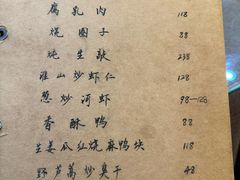 腐乳肉 118
烧圈子 88
炖生敲 238
淮山炒虾仁 128
葱炒河虾 98-128
香酥鸭 88
生姜瓜红烧麻鸭块 118
野芦蒿炒臭干 48